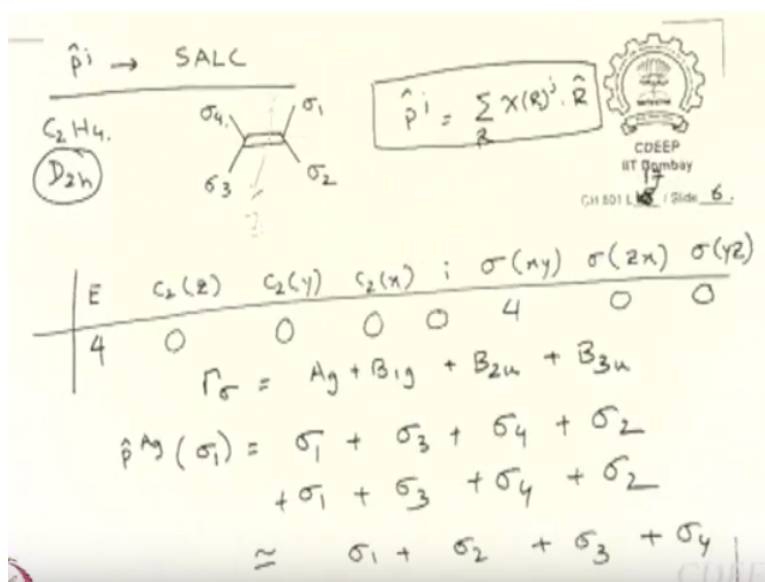 p̂ⁱ → SALC
C₂H₄.
D₂h
σ₄ σ₁
σ₃ σ₂
p̂ʲ = Σ_R χ(R)ʲ · R̂
CDEEP
IIT Bombay
17
CH 801 L / Slide 6.
E C₂(z) C₂(y) C₂(x) i σ(xy) σ(zx) σ(yz)
4 0 0 0 0 4 0 0
Γσ = Ag + B₁g + B₂u + B₃u
p̂^Ag (σ₁) = σ₁ + σ₃ + σ₄ + σ₂
+ σ₁ + σ₃ + σ₄ + σ₂
≅ σ₁ + σ₂ + σ₃ + σ₄